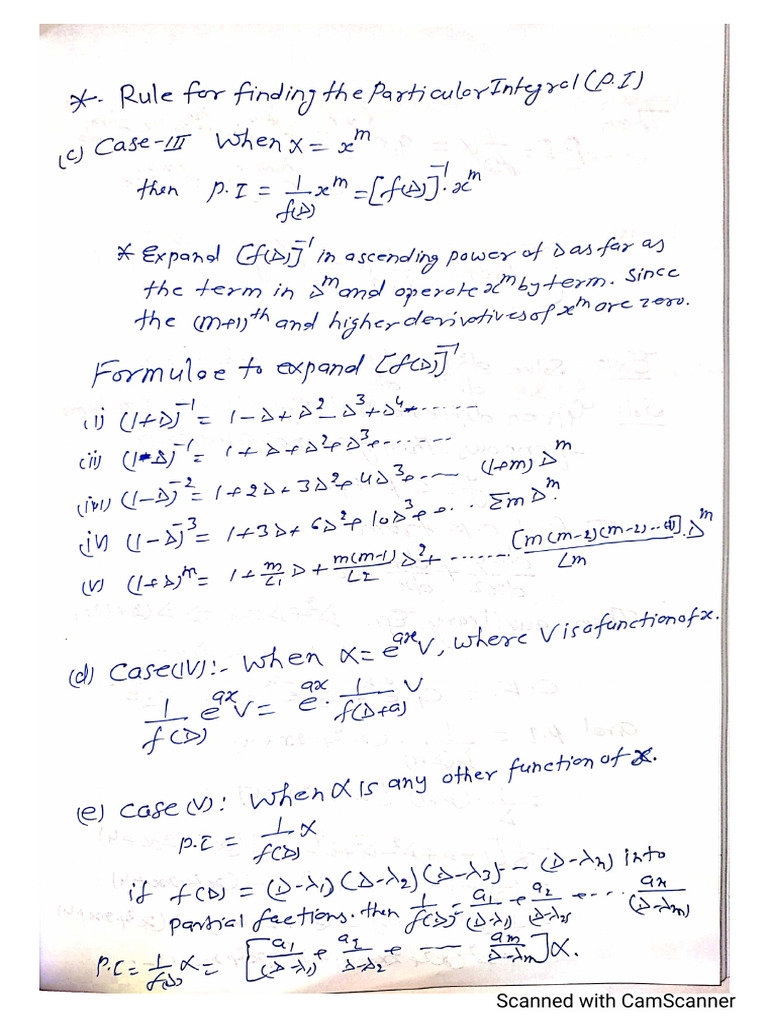 *. Rule for finding the Particular Integral (P.I)
(c) Case-III When X = x^m
then P.I = 1/f(D) x^m = [f(D)]^-1. x^m
* Expand [f(D)]^-1 in ascending power of D as far as
the term in D^m and operate x^m by term. Since
the (m+1)^th and higher derivatives of x^m are zero.
Formulae to expand [f(D)]^-1
(i) (1+D)^-1 = 1-D+D^2-D^3+D^4+......
(ii) (1-D)^-1 = 1+D+D^2+D^3+......
(iii) (1-D)^-2 = 1+2D+3D^2+4D^3+... (1+m) D^m
(iv) (1-D)^-3 = 1+3D+6D^2+10D^3+... Σm D^m.
(v) (1+D)^m = 1+ m/∟1 D + m(m-1)/∟2 D^2+ ....... [m(m-2)(m-2)...]/∟m . D^m
(d) Case(IV):- When X = e^ax V, where V is a function of x.
1/f(D) e^ax V = e^ax . 1/f(D+a) V
(e) Case (V): When X is any other function of x.
P.I = 1/f(D) X
if f(D) = (D-λ1) (D-λ2) (D-λ3) -- (D-λn) into
Partial factions. then 1/f(D) = a1/(D-λ1) + a2/(D-λ2) +.... an/(D-λn)
P.I = 1/f(D) X = [a1/(D-λ1) + a2/(D-λ2) + ---- am/(D-λm)] X.
Scanned with CamScanner